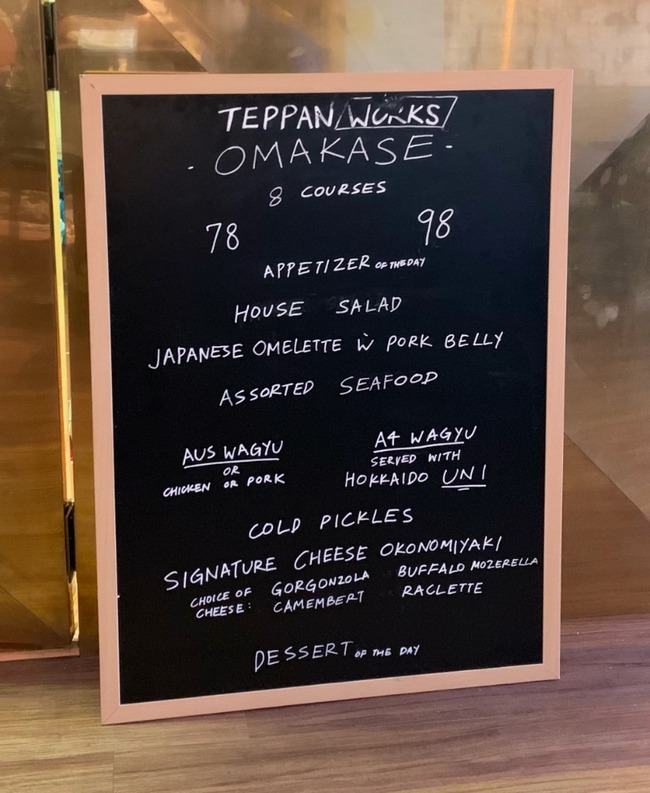 TEPPAN WORKS
- OMAKASE -
8 COURSES
78 98
APPETIZER OF THE DAY
HOUSE SALAD
JAPANESE OMELETTE W̄ PORK BELLY
ASSORTED SEAFOOD
AUS WAGYU
OR
CHICKEN OR PORK
A4 WAGYU
SERVED WITH
HOKKAIDO UNI
COLD PICKLES
SIGNATURE CHEESE OKONOMIYAKI
CHOICE OF CHEESE: GORGONZOLA BUFFALO MOZERELLA
CAMEMBERT RACLETTE
DESSERT OF THE DAY